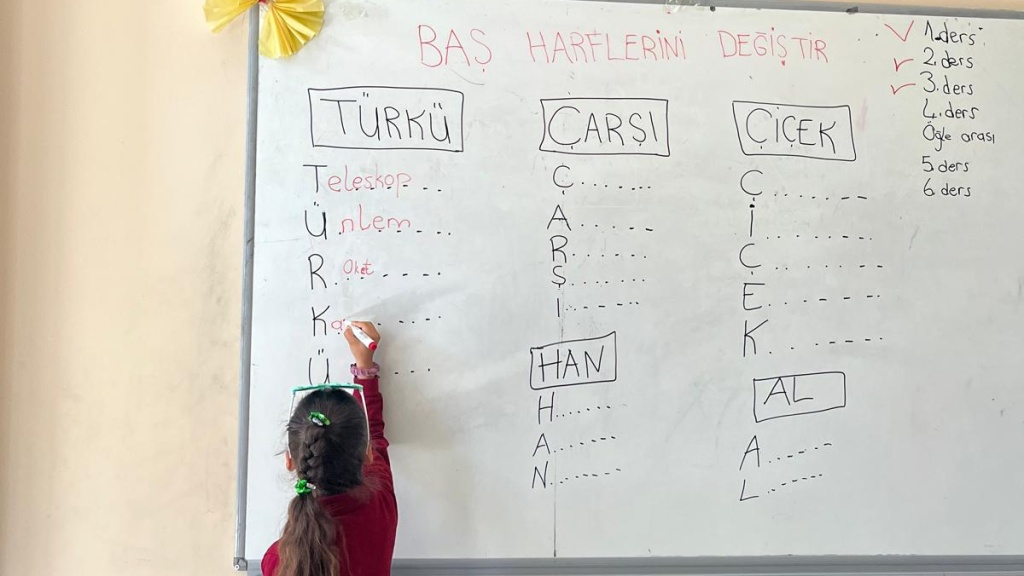 BAŞ HARFLERİNİ DEĞİŞTİR
TÜRKÜ
Teleskop...
Ü.nlem....
R. Oket.....
Ka......
Ü ....
ÇARŞI
Ç.......
A......
R......
Ş......
I......
HAN
H.......
A.......
N.......
ÇİÇEK
Ç........
İ........
Ç........
E........
K........
AL
A.......
L.......
1. ders
2. ders
3. ders
4. ders
Öğle arası
5. ders
6. ders